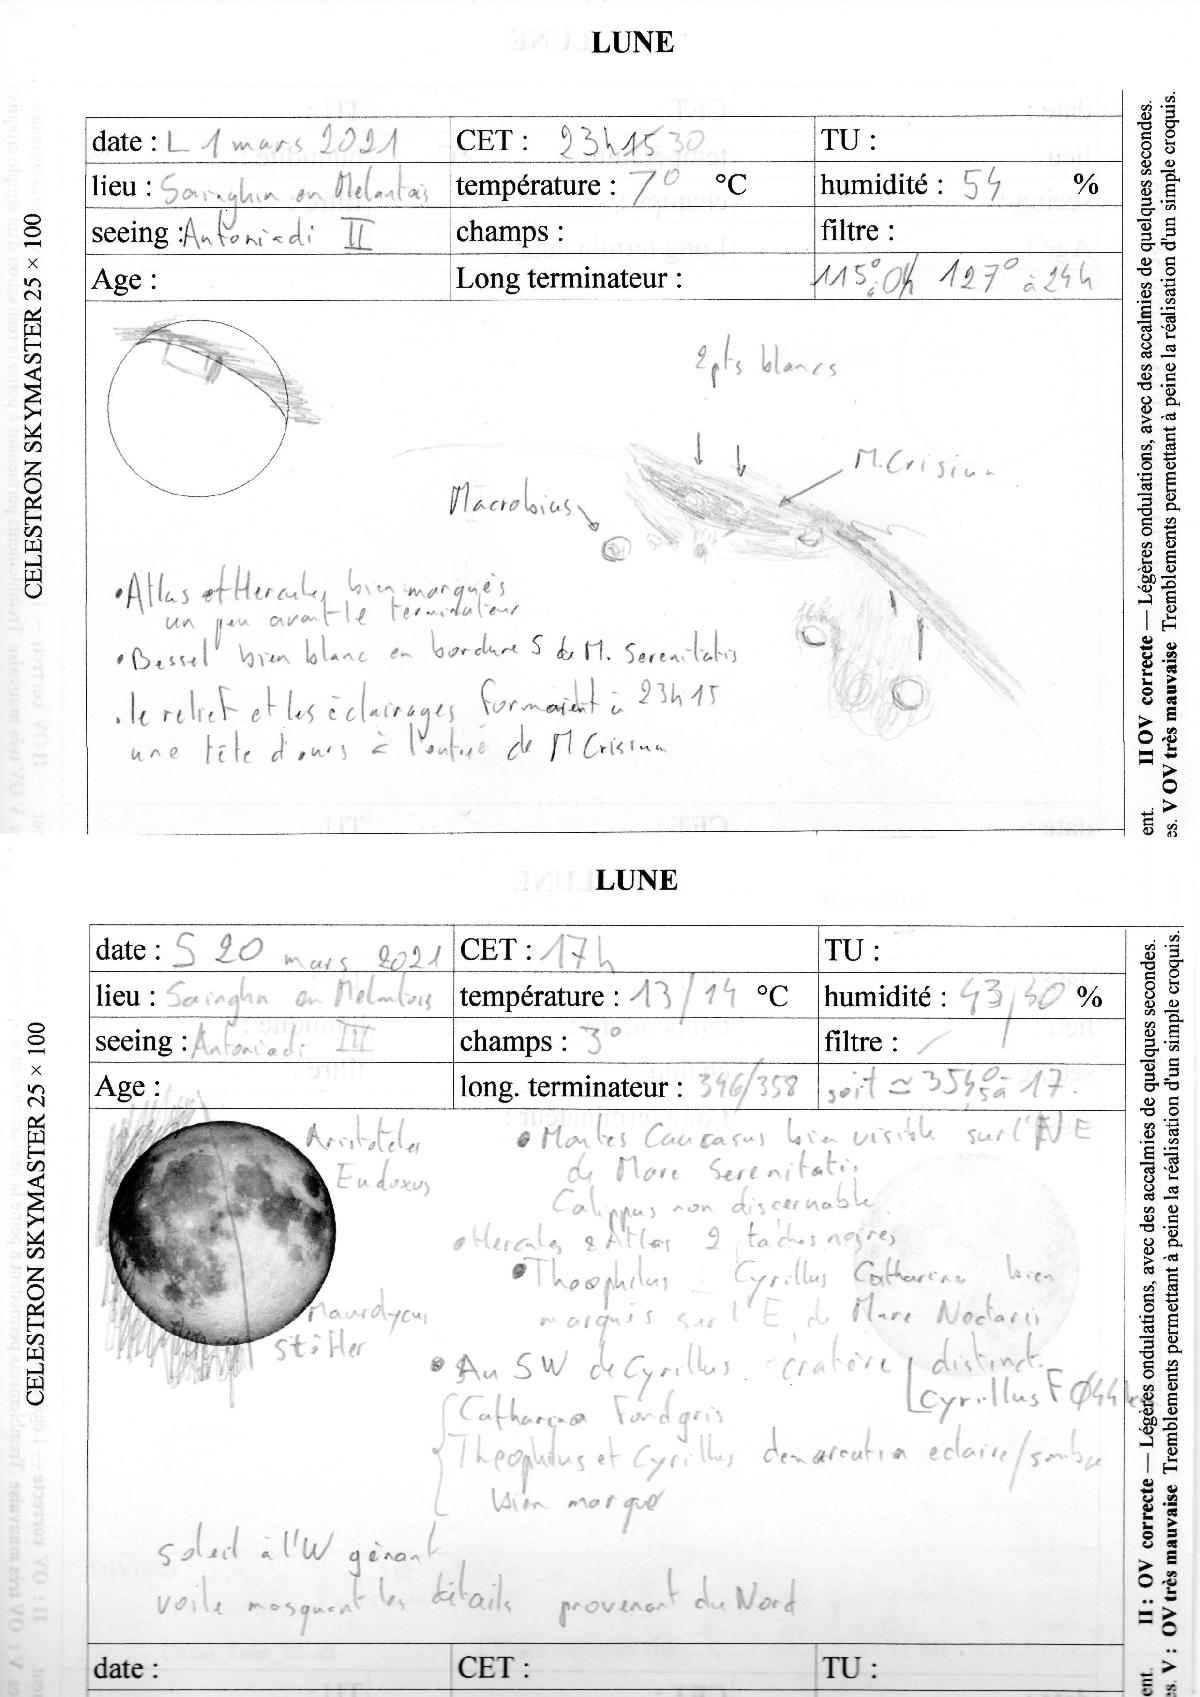 LUNE
date : L 1 mars 2021 CET : 23h15 30 TU :
lieu : Sainghin en Melantois température : 7° °C humidité : 54 %
seeing : Antoniadi II champs : filtre :
Age : Long terminateur : 115° à 0h 127° à 24h
2pts blancs
M. Crisium
Macrobius
• Atlas et Hercules bien marqués
un peu avant le terminateur
• Bessel bien blanc en bordure S de M. Serenitatis
. le relief et les éclairages formaient à 23h15
une tête d'ours à l'entrée de M Crisium
CELESTRON SKYMASTER 25 × 100
II OV correcte — Légères ondulations, avec des accalmies de quelques secondes.
V OV très mauvaise Tremblements permettant à peine la réalisation d'un simple croquis.
LUNE
date : S 20 mars 2021 CET : 17h TU :
lieu : Sainghin en Melantois température : 13/14 °C humidité : 43/30 %
seeing : Antoniadi III champs : 3° filtre : /
Age : long. terminateur : 346/358 soit ≃ 354,5° à 17.
Aristoteles
Eudoxus
Maurolycus
Stöfler
• Montes Caucasus bien visible sur l'E
de Mare Serenitatis
Calippus non discernable
• Hercules & Atlas 2 taches noires
• Theophilus _ Cyrillus Catharina bien
marqués sur l'E de Mare Nectaris
• Au SW de Cyrillus cratère distinct.
Cyrillus F Ø44
Catharina Fond gris
Theophilus et Cyrillus demarcation eclaire/sombre
bien marqué
soleil à l'W gênant
voile masquant les détails provenant du Nord
CELESTRON SKYMASTER 25 × 100
II : OV correcte — Légères ondulations, avec des accalmies de quelques secondes.
V : OV très mauvaise Tremblements permettant à peine la réalisation d'un simple croquis.
date : CET : TU :